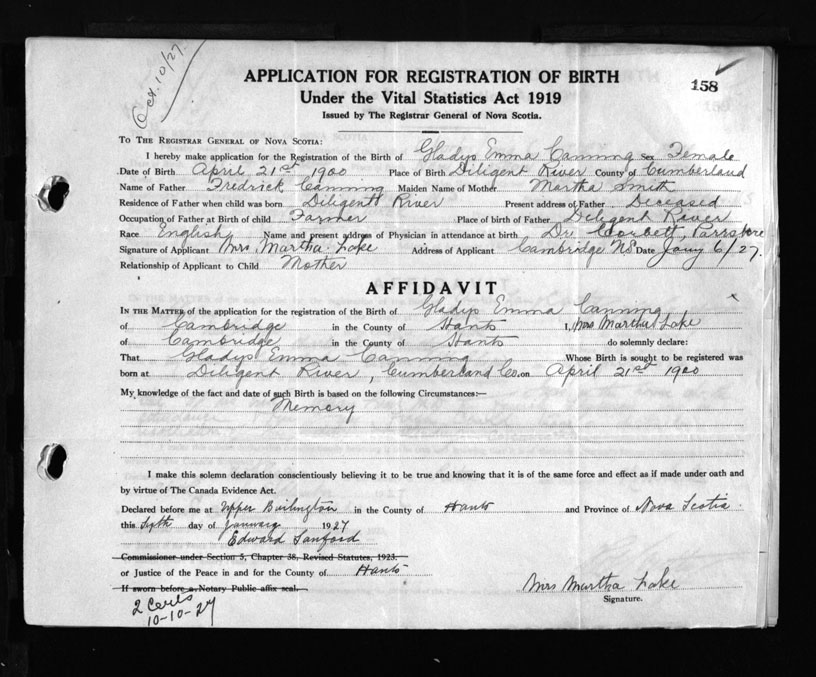 Oct. 10/27.
APPLICATION FOR REGISTRATION OF BIRTH
158
Under the Vital Statistics Act 1919
Issued by The Registrar General of Nova Scotia.
TO THE REGISTRAR GENERAL OF NOVA SCOTIA:
I hereby make application for the Registration of the Birth of Gladys Emma Canning Sex Female
Date of Birth April 21st 1900 Place of Birth Diligent River County of Cumberland
Name of Father Fredrick Canning Maiden Name of Mother Martha Smith
Residence of Father when child was born Diligent River Present address of Father Deceased
Occupation of Father at Birth of child Farmer Place of birth of Father Deligent River
Race English Name and present address of Physician in attendance at birth Dr Corbett, Parrsboro
Signature of Applicant Mrs. Martha Lake Address of Applicant Cambridge NS Date Jany 6/27.
Relationship of Applicant to Child Mother
AFFIDAVIT
IN THE MATTER of the application for the registration of the Birth of Gladys Emma Canning
of Cambridge in the County of Hants I, Mrs Martha Lake
of Cambridge in the County of Hants do solemnly declare:
That Gladys Emma Canning Whose Birth is sought to be registered was
born at Diligent River, Cumberland Co. on April 21st 1900
My knowledge of the fact and date of such Birth is based on the following Circumstances:—
Memory
I make this solemn declaration conscientiously believing it to be true and knowing that it is of the same force and effect as if made under oath and
by virtue of The Canada Evidence Act.
Declared before me at Upper Burlington in the County of Hants and Province of Nova Scotia.
this Sixth day of January 1927
Edward Sanford
Commissioner under Section 5, Chapter 38, Revised Statutes, 1923.
or Justice of the Peace in and for the County of Hants
If sworn before a Notary Public affix seal.
Mrs Martha Lake
Signature.
2 Certs
10-10-27